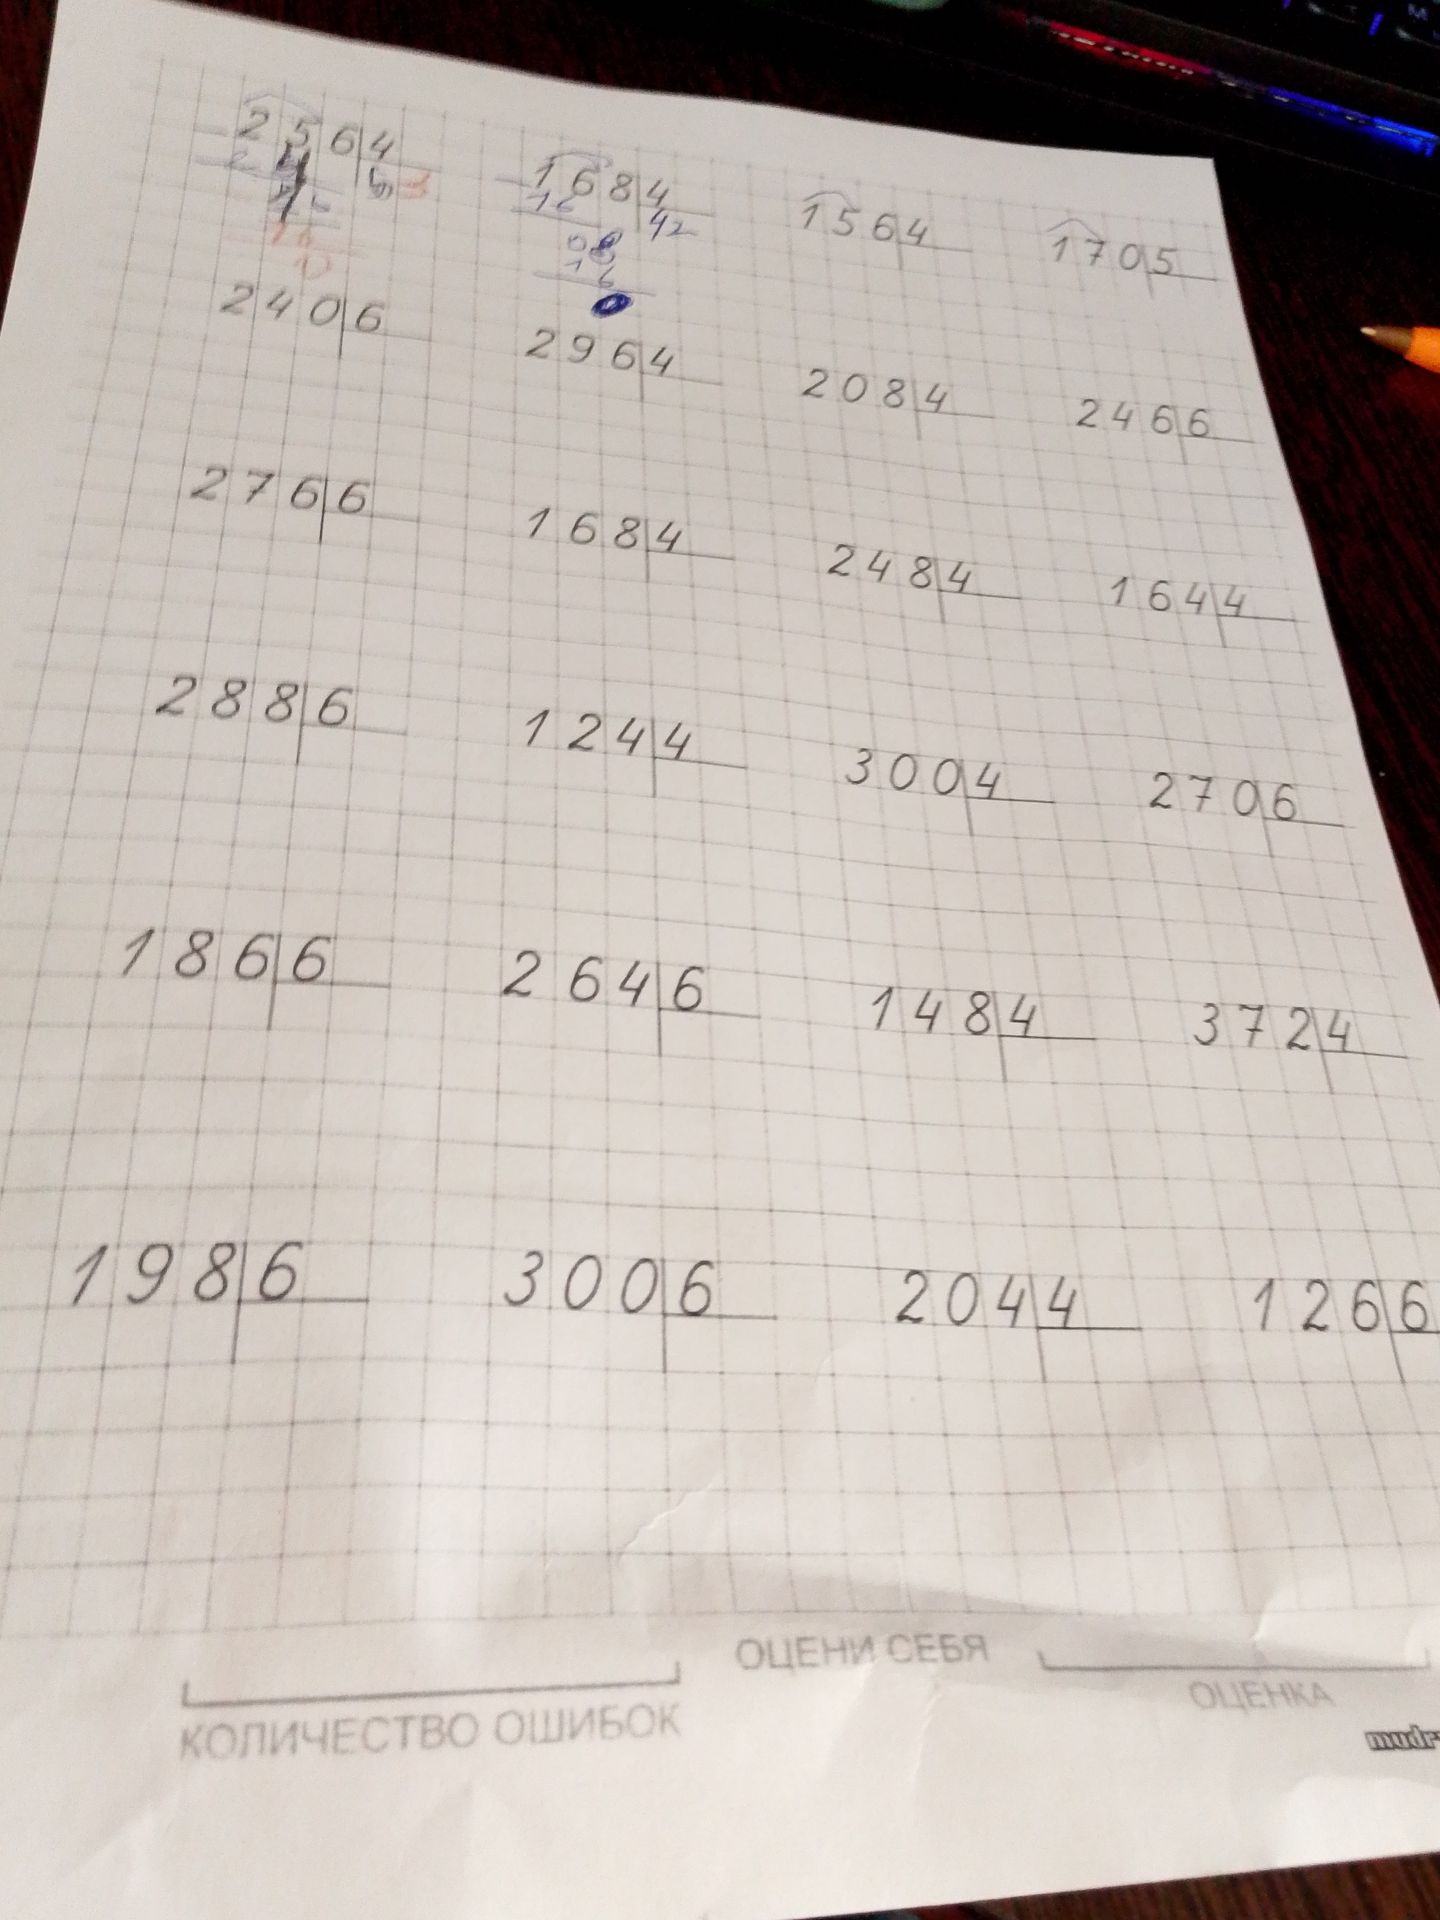 2564 1684 1564 1705
42
16
08
16
0
2406 2964 2084 2466
2766 1684 2484 1644
2886 1244 3004 2706
1866 2646 1484 3724
1986 3006 2044 1266
ОЦЕНИ СЕБЯ
КОЛИЧЕСТВО ОШИБОК ОЦЕНКА